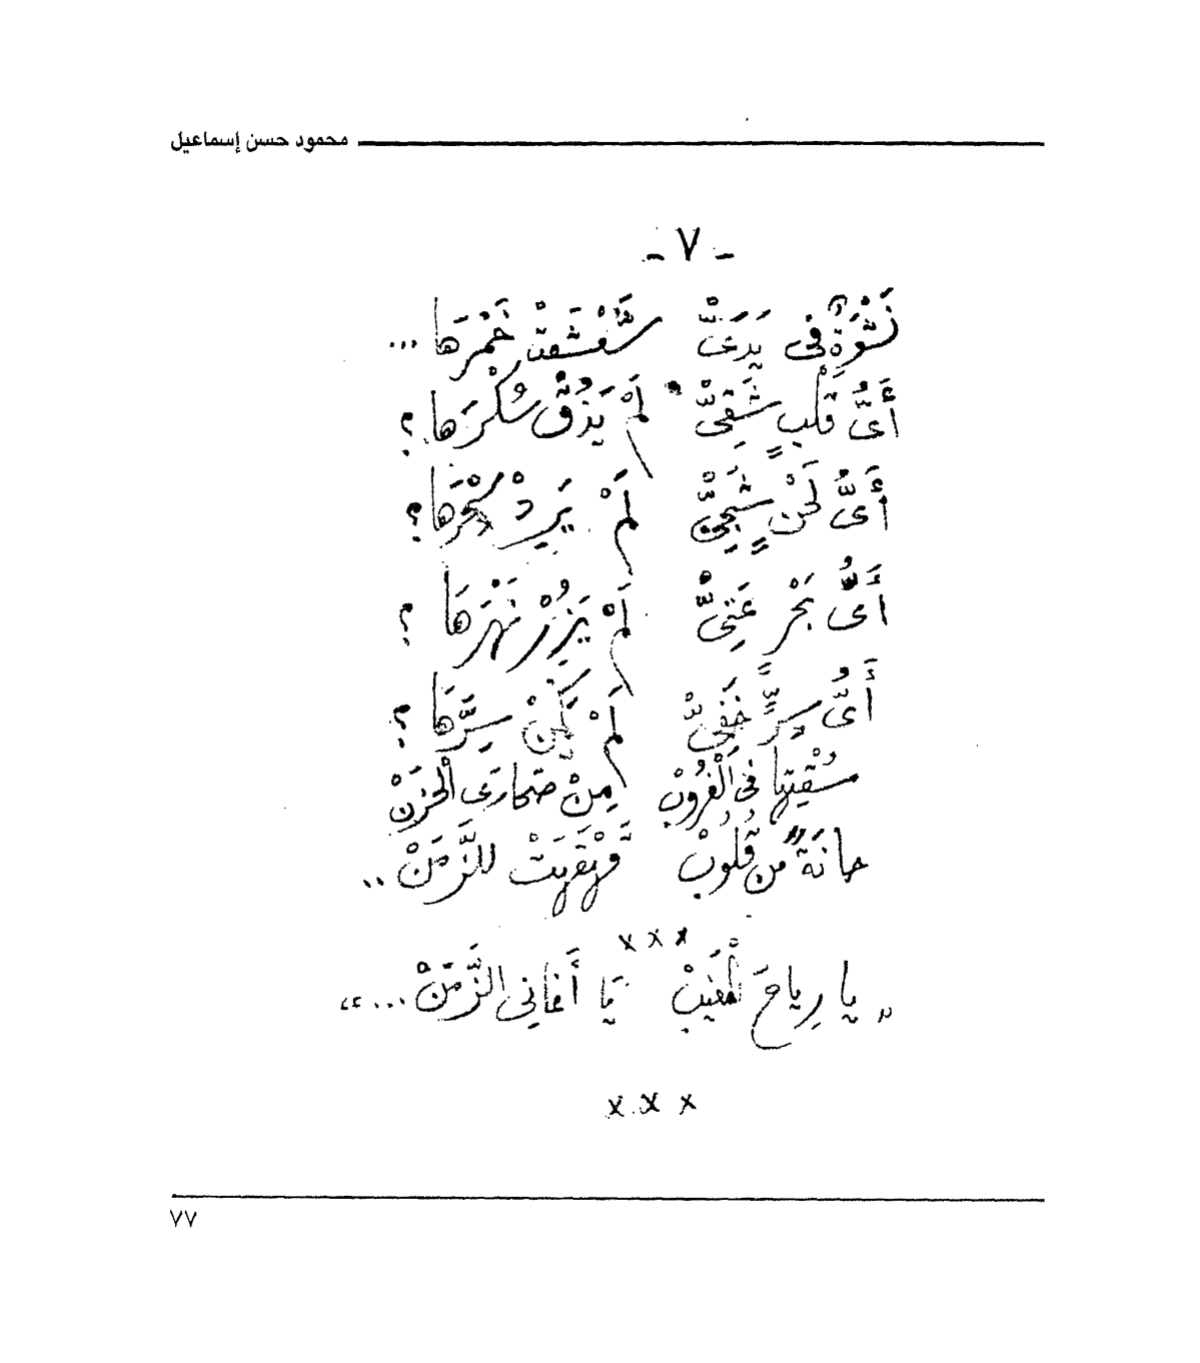 محمود حسن إسماعيل
- ٧ -
نَشْوَةٌ فى يَدَىَّ شَعْشَعَتْ خَمْرَها ...
أَىُّ قَلْبٍ شَقِىٍّ لَمْ يَذُقْ سُكْرَها ؟
أَىُّ لَحْنٍ شَجِىٍّ لَمْ يَرِدْ سِحْرَها ؟
أَىُّ بَحْرٍ عَتِىٍّ لَمْ يَزُرْ نَهْرَهَا ؟
أَىُّ سِرٍّ خَفِىٍّ لَمْ يَكُنْ سِرَّهَا ؟
سُقْيتها فى الْغُروُبْ مِنْ صَحَارَى الْحَزَنْ
حانَةٌ من قُلُوبْ قَهْقَهَتْ للزَّمَنْ ..
" يا رِياحَ الْمغِيبْ يَا أَغانِى الزَّمَنْ ... "
x x x
x x x
٧٧